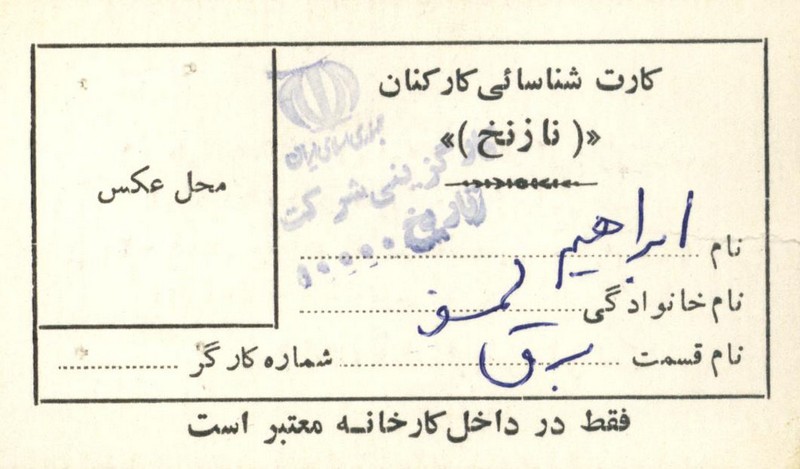 کارت شناسائی کارکنان
«( نازنخ )»
محل عکس
جمهوری اسلامی ایران
شرکت
نام ابراهیم
نام خانوادگی
نام قسمت برق
شماره کارگر
فقط در داخل کارخانه معتبر است